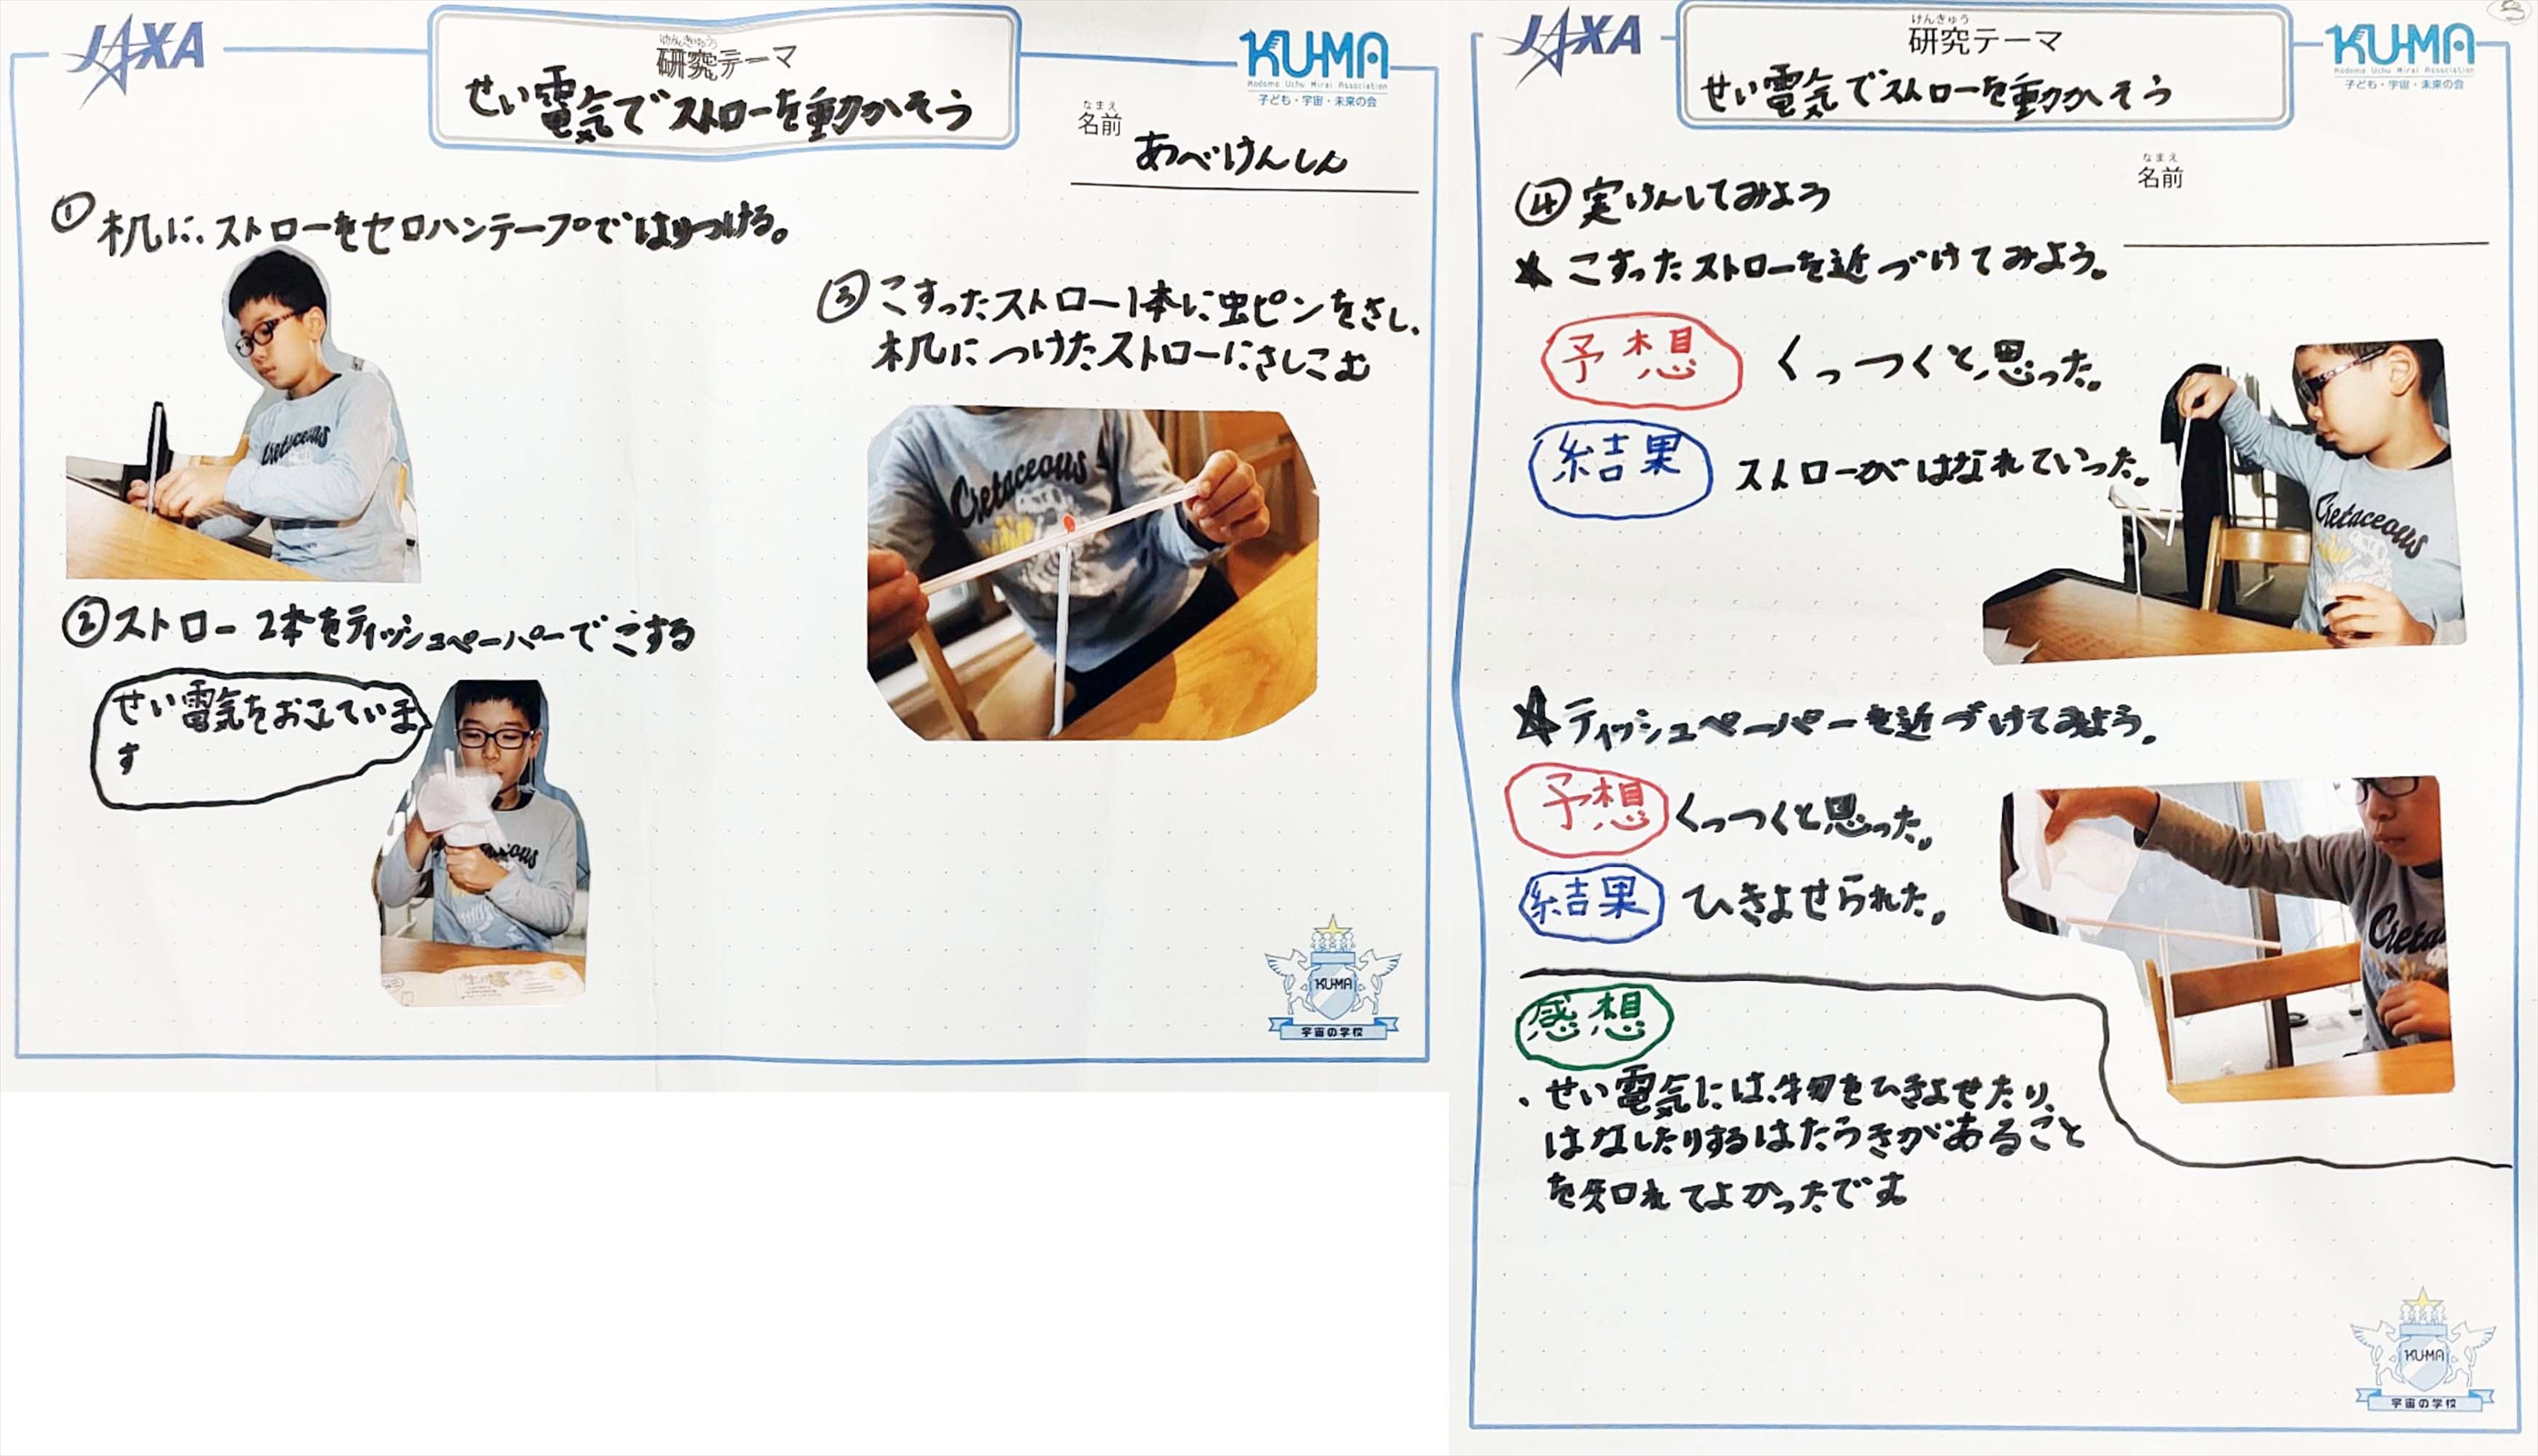 JAXA
けんきゅう
研究テーマ
せい電気でストローを動かそう
KU-MA
Kodomo Uchu Mirai Association
子ども・宇宙・未来の会
なまえ
名前
あべけんしん
① 机に、ストローをセロハンテープではりつける。
Cretaceous
② ストロー2本をティッシュペーパーでこする
せい電気をおこしていま
す
③ こすったストロー1本に虫ピンをさし、
机につけたストローにさしこむ
Cretaceous
KU-MA
宇宙の学校
JAXA
けんきゅう
研究テーマ
せい電気でストローを動かそう
KU-MA
Kodomo Uchu Mirai Association
子ども・宇宙・未来の会
なまえ
名前
④ 実けんしてみよう
★ こすったストローを近づけてみよう。
予想 くっつくと思った。
結果 ストローがはなれていった。
Cretaceous
★ ティッシュペーパーを近づけてみよう。
予想 くっつくと思った。
結果 ひきよせられた。
感想
・せい電気には、物をひきよせたり、
はなしたりするはたらきがあること
を知れてよかったです。
KU-MA
宇宙の学校